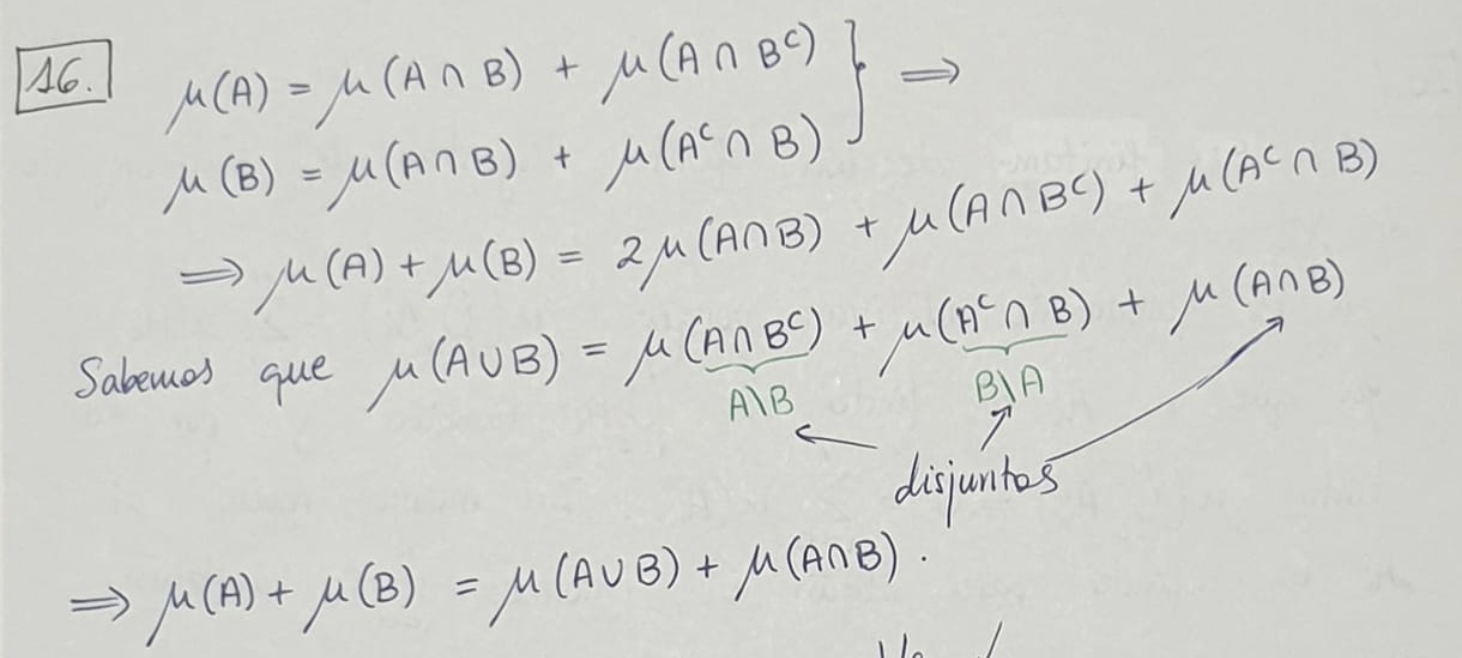 16. μ(A) = μ(A ∩ B) + μ(A ∩ Bᶜ) } ⟹
μ(B) = μ(A ∩ B) + μ(Aᶜ ∩ B)
⟹ μ(A) + μ(B) = 2μ(A∩B) + μ(A ∩ Bᶜ) + μ(Aᶜ ∩ B)
Sabemos que μ(A∪B) = μ(A∩Bᶜ) + μ(Aᶜ ∩ B) + μ(A∩B)
A\B B\A
disjuntos
⟹ μ(A) + μ(B) = μ(A∪B) + μ(A∩B).